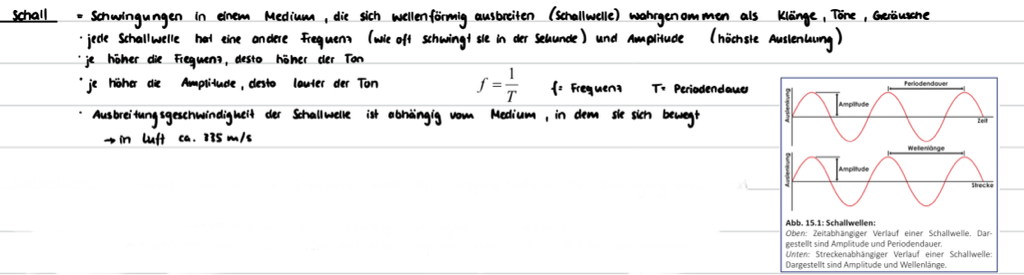 Schall = Schwingungen in einem Medium, die sich wellenförmig ausbreiten (Schallwelle) wahrgenommen als Klänge, Töne, Geräusche
· jede Schallwelle hat eine andere Frequenz (wie oft schwingt sie in der Sekunde) und Amplitude (höchste Auslenkung)
· je höher die Frequenz, desto höher der Ton
· je höher die Amplitude, desto lauter der Ton f = 1/T f = Frequenz T = Periodendauer
· Ausbreitungsgeschwindigkeit der Schallwelle ist abhängig vom Medium, in dem sie sich bewegt
→ in Luft ca. 335 m/s
Periodendauer
Auslenkung
Amplitude
Zeit
Wellenlänge
Auslenkung
Amplitude
Strecke
Abb. 15.1: Schallwellen:
Oben: Zeitabhängiger Verlauf einer Schallwelle. Dar-
gestellt sind Amplitude und Periodendauer.
Unten: Streckenabhängiger Verlauf einer Schallwelle:
Dargestellt sind Amplitude und Wellenlänge.